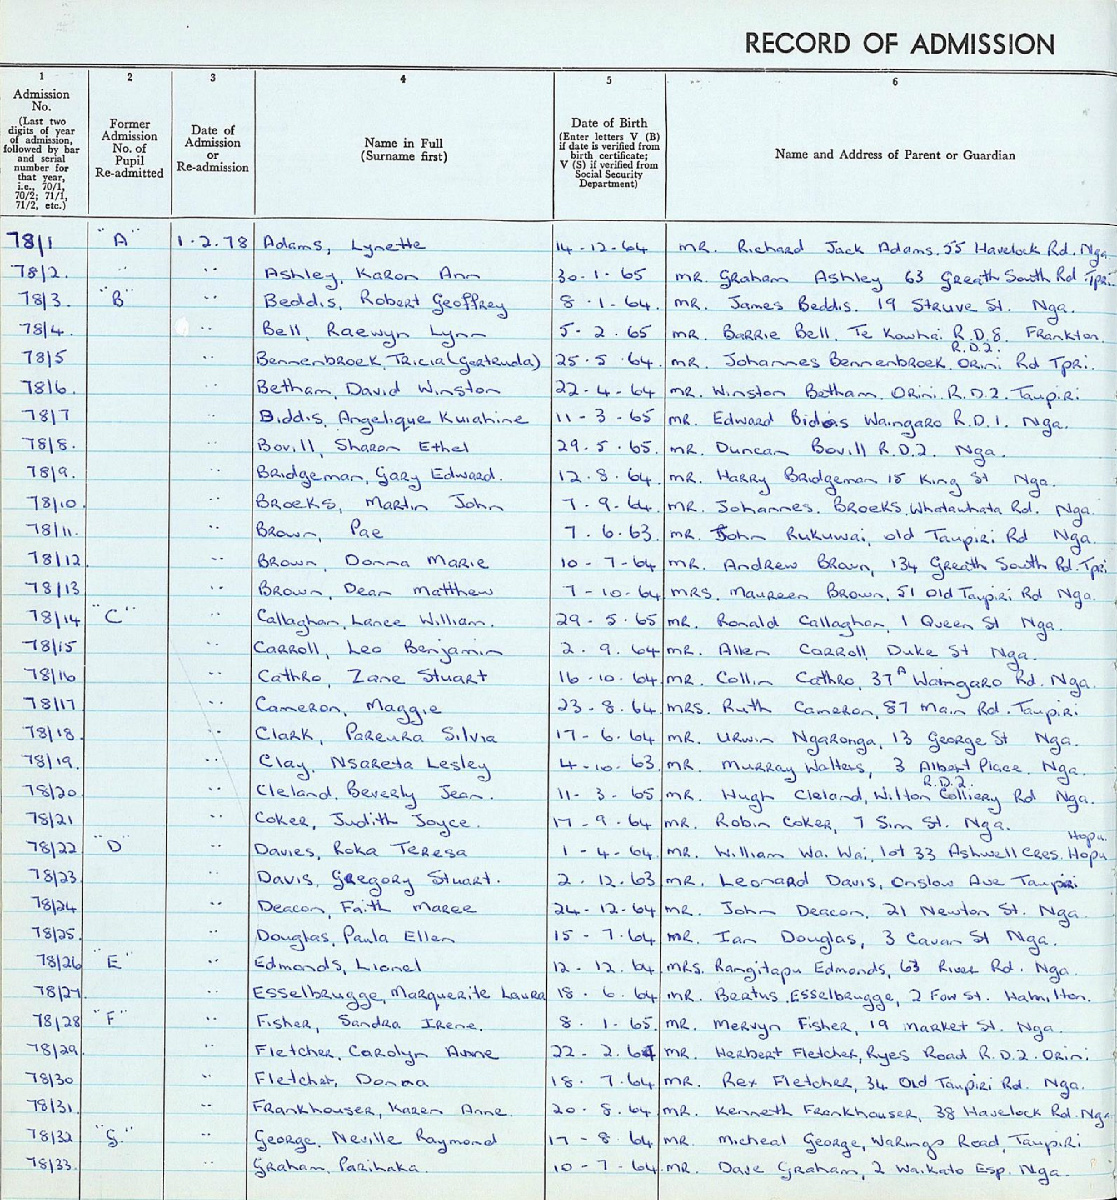 RECORD OF ADMISSION
1 2 3 4 5 6
Admission
No.
(Last two
digits of year
of admission,
followed by bar
and serial
number for
that year,
i.e., 70/1,
70/2; 71/1,
71/2, etc.)
Former
Admission
No. of
Pupil
Re-admitted
Date of
Admission
or
Re-admission
Name in Full
(Surname first)
Date of Birth
(Enter letters V (B)
if date is verified from
birth certificate;
V (S) if verified from
Social Security
Department)
Name and Address of Parent or Guardian
78/1 "A" 1.2.78 Adams, Lynette 14-12-64 MR. Richard Jack Adams. 55 Havelock Rd. Nga
78/2. " " Ashley, Karon Ann 30.1.65 MR. Graham Ashley 63 Greath South Rd Tpri.
78/3. "B" " Beddis, Robert Geoffrey 8.1.64. MR. James Beddis. 19 Struve St. Nga.
78/4. " Bell, Raewyn Lynn 5-2.65 MR. Barrie Bell. Te Kowhai R.D.8. Frankton.
R.D.2.
78/5 " Bennenbroek, Tricia (Gertruda) 25.5.64. MR. Johannes Bennenbroek. Orini Rd Tpri.
78/6. " Betham, David Winston 22-4-64 MR. Winston Betham. Orini. R.D.2. Taupiri
78/7 " Biddis, Angelique Kuiahine 11-3-65 MR. Edward Biddis Waingaro R.D.1. Nga.
78/8. " Bovill, Sharon Ethel 29.5.65. MR. Duncan Bovill R.D.2. Nga.
78/9. " Bridgeman, Gary Edward. 12.8.64. MR. Harry Bridgeman 15 King St Nga.
78/10 " Broeks, Martin John 7.9.64. MR. Johannes. Broeks, Whatawhata Rd. Nga.
78/11. " Brown, Pae 7.6.63. MR. John Rukuwai, old Taupiri Rd Nga.
78/12 " Brown, Donna Marie 10-7-64 MR. Andrew Brown, 134 Greath South Rd. Tpri
78/13 " Brown, Dean Matthew 7-10-64 MRS. Maureen Brown, 51 Old Taupiri Rd Nga.
78/14 "C" " Callaghan, Lance William. 29-5.65 MR. Ronald Callaghan, 1 Queen St Nga.
78/15 " Carroll, Leo Benjamin 2.9.64 MR. Allen Carroll Duke St Nga.
78/16 " Cathro, Zane Stuart 16-10.64 MR. Collin Cathro, 37A Waingaro Rd. Nga.
78/17 " Cameron, Maggie 23-8.64 MRS. Ruth Cameron, 87 Main Rd. Taupiri
78/18. " Clark, Pareura Silvia 17-6.64 MR. Urwin Ngaronga, 13 George St Nga.
78/19. " Clay, Nsareta Lesley 4-10.63. MR. Murray Walters, 3 Albert Place. Nga.
R.D.2.
78/20 " Cleland, Beverly Jean. 11-3.65 MR. Hugh Cleland, Wilton Colliery Rd Nga.
78/21 " Coker, Judith Joyce. 17-9.64 MR. Robin Coker, 7 Sim St. Nga.
Hopu.
78/22 "D" " Davies, Roka Teresa 1-4-64. MR. William Wa. Wai, lot 33 Ashwell Cres. Hopu
78/23. " Davis, Gregory Stuart. 2.12.63 MR. Leonard Davis, Onslow Ave Taupiri
78/24 " Deacon, Faith Maree 24-12-64 MR. John Deacon, 21 Newton St. Nga.
78/25. " Douglas, Paula Ellen 15-7.64 MR. Ian Douglas, 3 Cavan St Nga.
78/26 "E" " Edmonds, Lionel 12-12.64 MRS. Rangitapu Edmonds, 63 River Rd. Nga.
78/27. " Esselbrugge, Marguerite Laura 18.6.64 MR. Bertus. Esselbrugge, 2 Fow St. Hamilton.
78/28 "F" " Fisher, Sandra Irene. 8.1.65. MR. Mervyn Fisher, 19 Market St. Nga.
78/29. " Fletcher, Carolyn Anne 22-2.64 MR. Herbert Fletcher, Ryes Road R.D.2. Orini
78/30 " Fletcher, Donna 18.7.64 MR. Rex Fletcher, 34 Old Taupiri Rd. Nga.
78/31. " Frankhouser, Karen Anne. 20-8.64 MR. Kenneth Frankhouser, 38 Havelock Rd. Nga
78/32 "G" " George, Neville Raymond 17-8.64 MR. Micheal George, Warings Road, Taupiri
78/33. " Graham, Parihaka. 10-7-64 MR. Dave Graham, 2 Waikato Esp. Nga.